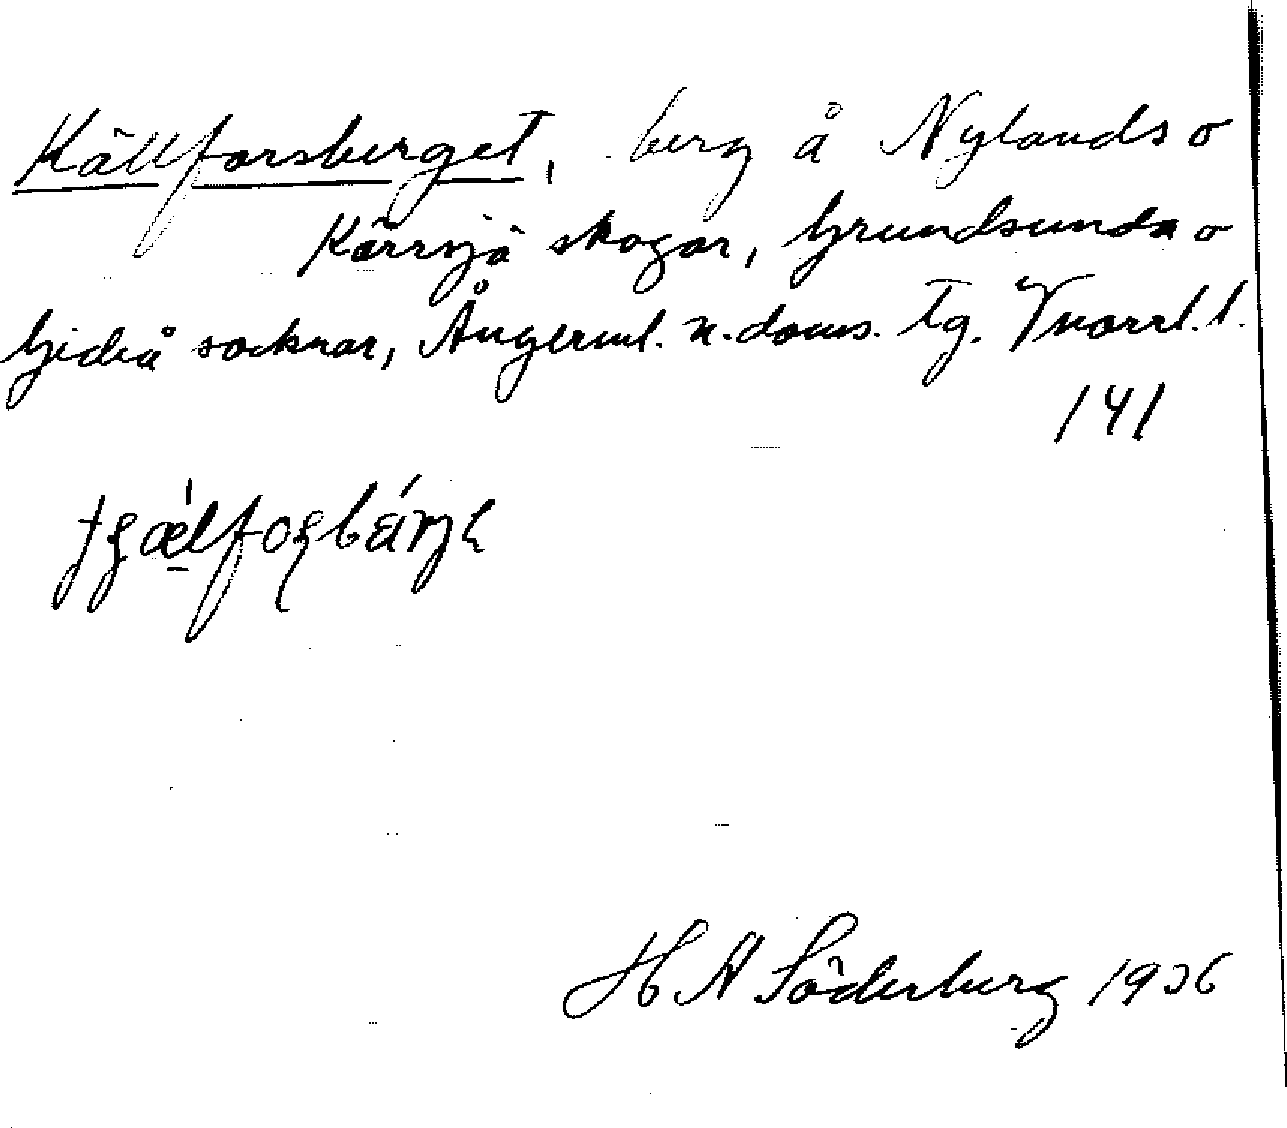 Källforsberget, berg å Nylands o
Kärrsjö skogar, Grundsunda o
Gideå socknar, Ångerml. n. doms. tg. Vnorrl. l.
141
H A Söderberg 1936